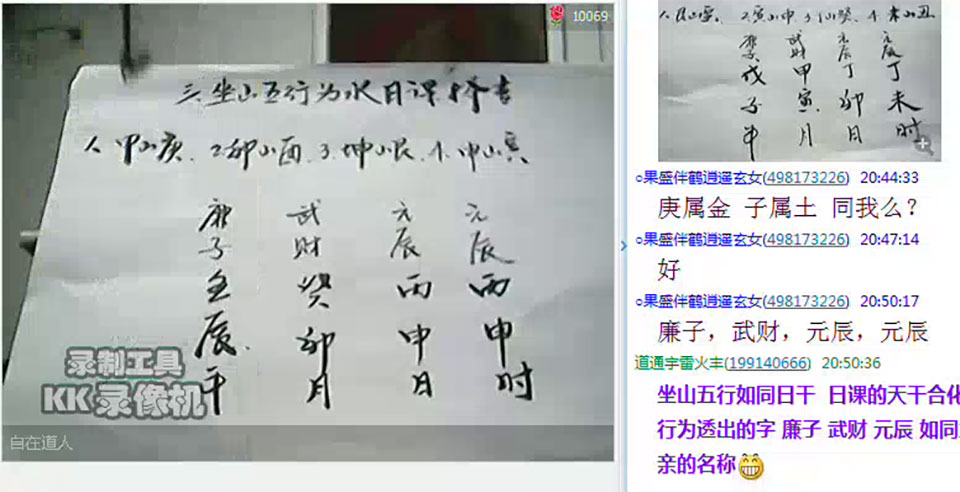 10069
三、坐山五行为水日课择吉
1、甲山庚、2、卯山酉、3、坤山艮、4、申山寅
廉 武 元 元
子 财 辰 辰
壬 癸 丙 丙
辰 卯 申 申
年 月 日 时
录制工具
KK 录像机
自在道人
2、寅山申
廉 武 元 元
子 财 辰 辰
戊 甲 丁 丁
子 寅 卯 未
年 月 日 时
○果盛伴鹤逍遥玄女(498173226) 20:44:33
庚属金 子属土 同我么？
○果盛伴鹤逍遥玄女(498173226) 20:47:14
好
○果盛伴鹤逍遥玄女(498173226) 20:50:17
廉子，武财，元辰，元辰
道通宇雷火丰(199140666) 20:50:36
坐山五行如同日干 日课的天干合化
行为透出的字 廉子 武财 元辰 如同
亲的名称